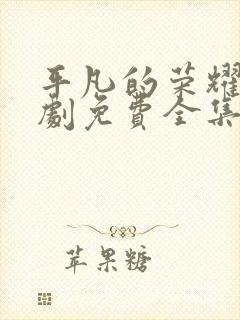 平凡的荣耀
劇免費全集
苹果糖